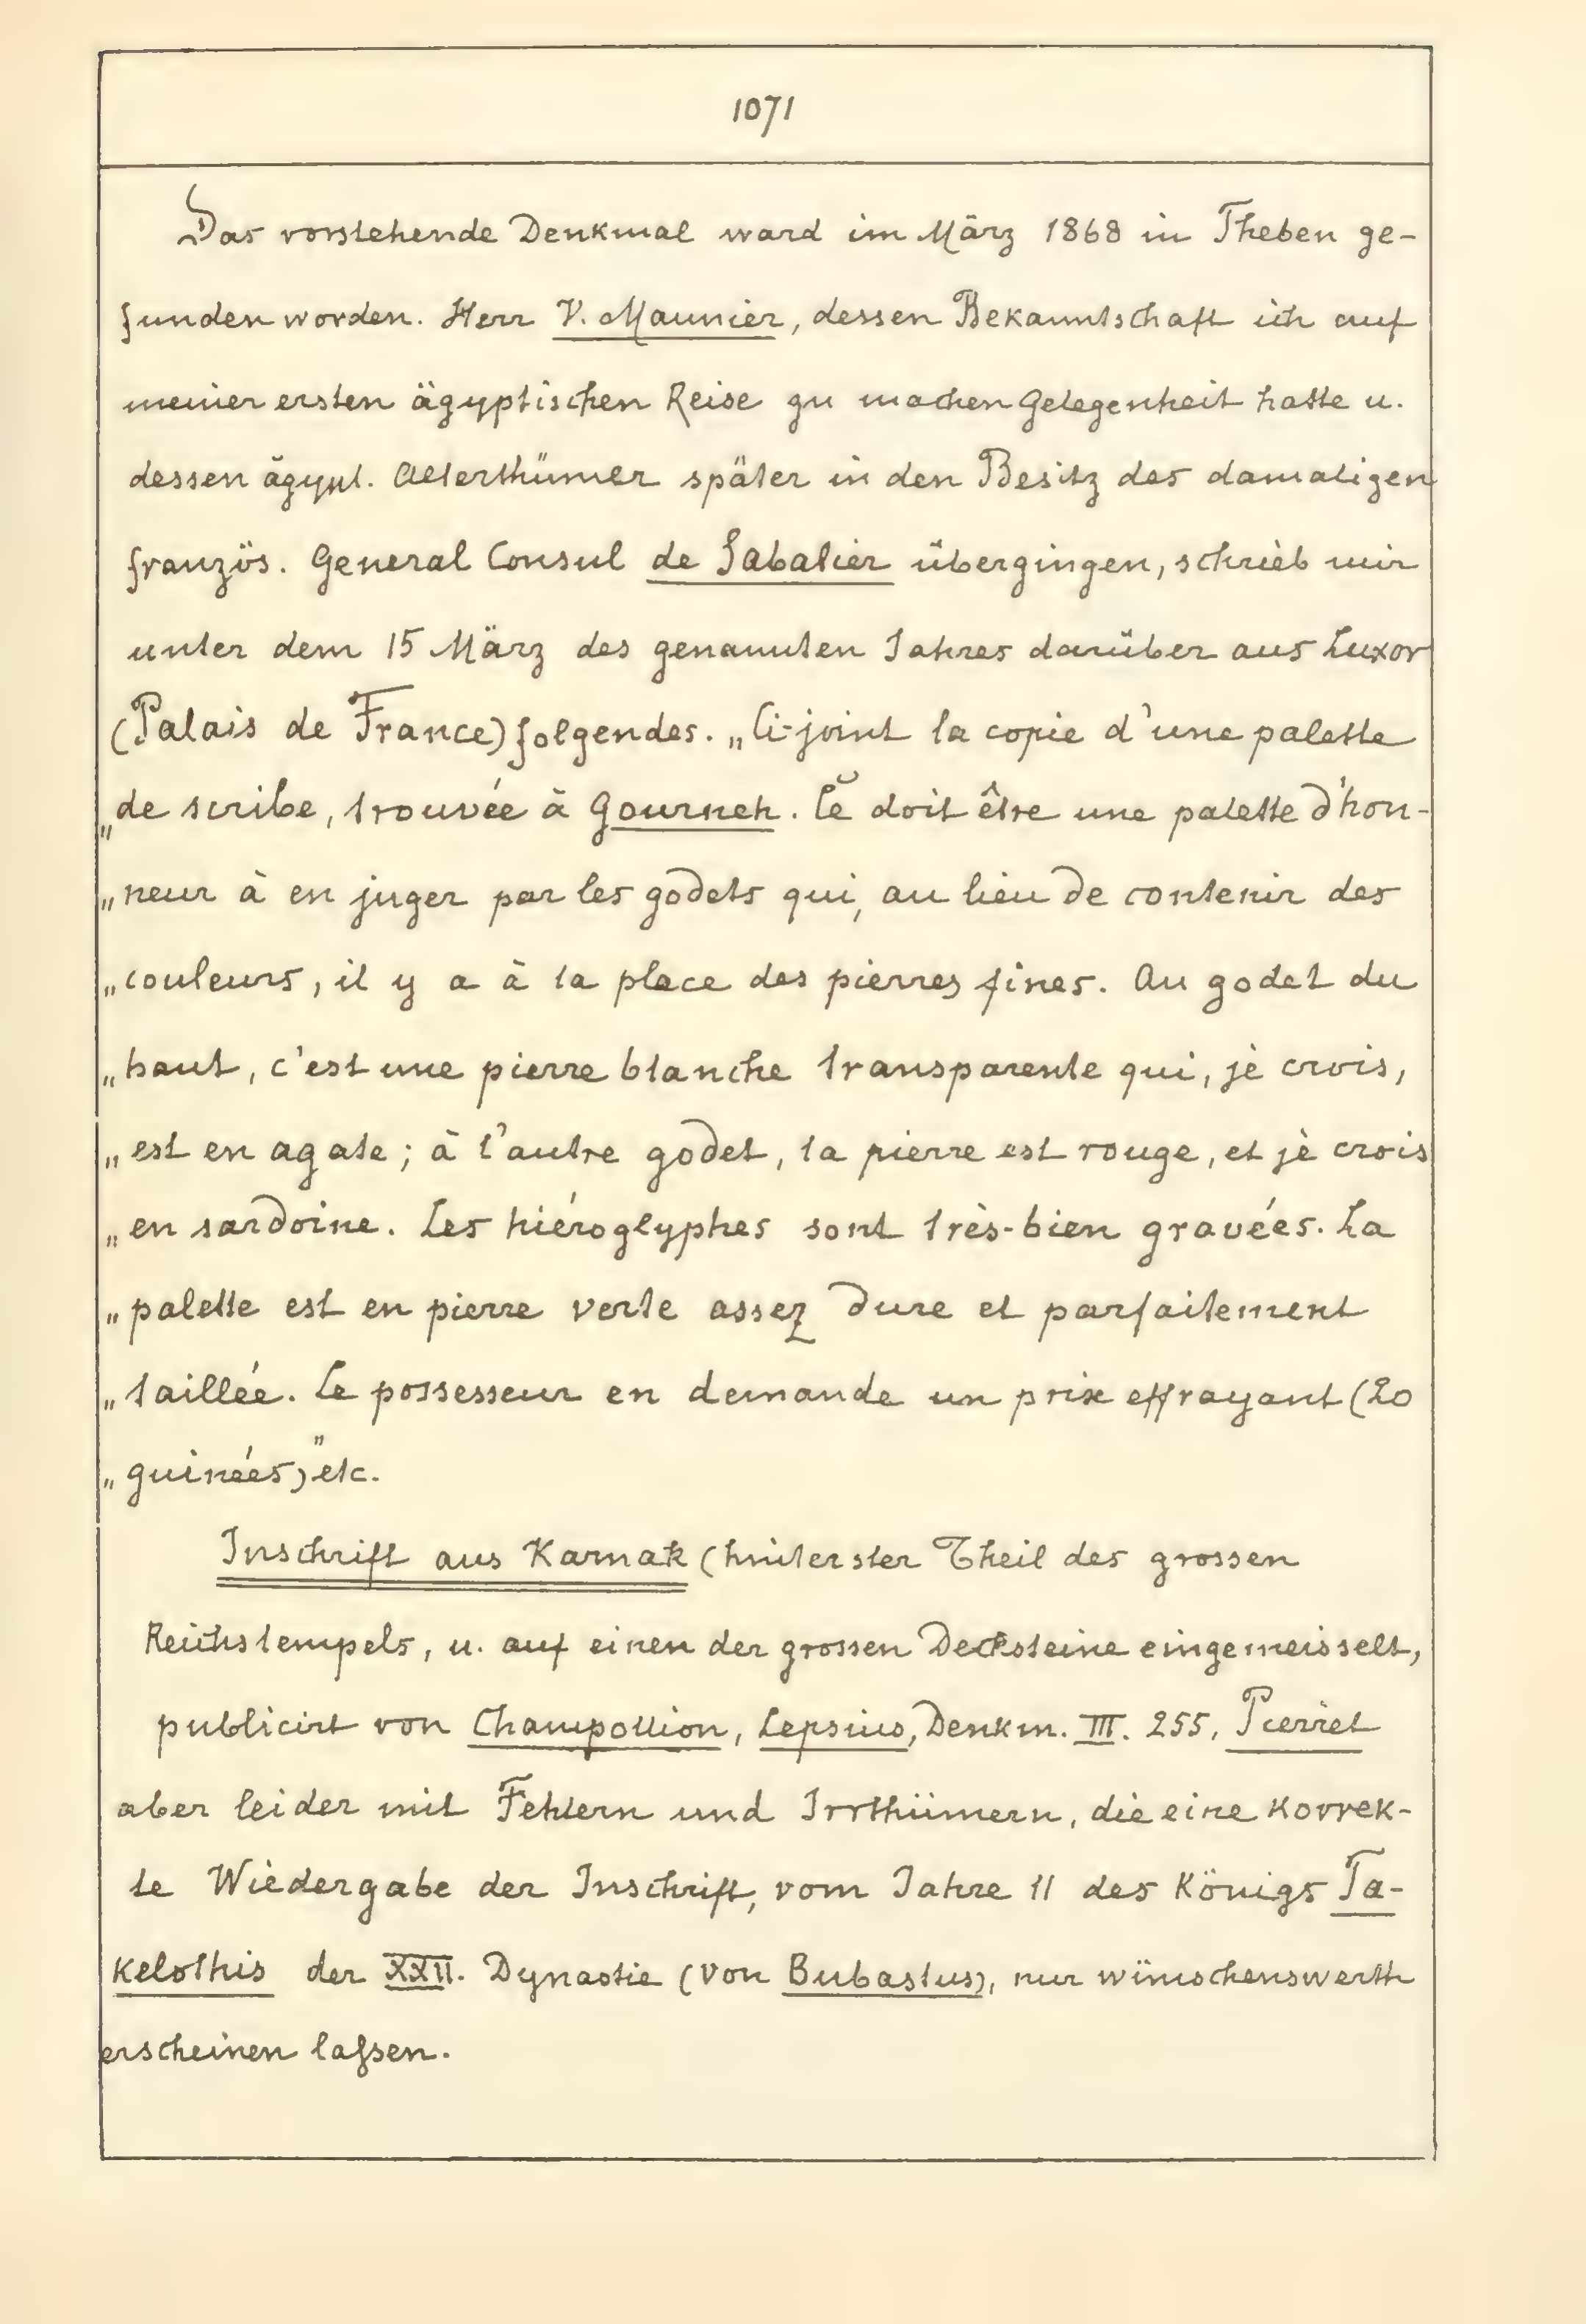 1071
Das vorstehende Denkmal ward im März 1868 in Theben ge-
funden worden. Herr V. Maunier, dessen Bekanntschaft ich auf
meiner ersten ägyptischen Reise zu machen Gelegenheit hatte u.
dessen ägypt. Alterthümer später in den Besitz des damaligen
französ. General Consul de Sabatier übergingen, schrieb mir
unter dem 15 März des genannten Jahres darüber aus Luxor
(Palais de France) folgendes. „Ci-joint la copie d'une palette
„de scribe, trouvée à Gourneh. Ce doit être une palette d'hon-
„neur à en juger par les godets qui, au lieu de contenir des
„couleurs, il y a à la place des pierres fines. Au godet du
„haut, c'est une pierre blanche transparente qui, je crois,
„est en agate; à l'autre godet, la pierre est rouge, et je crois
„en sardoine. Les hiéroglyphes sont très-bien gravées. La
„palette est en pierre verte assez dure et parfaitement
„taillée. Le possesseur en demande un prix effrayant (20
„guinées)" etc.
Inschrift aus Karnak (hinterster Theil des grossen
Reichstempels, u. auf einen der grossen Decksteine eingemeisselt,
publicirt von Champollion, Lepsius, Denkm. III. 255, Pierret
aber leider mit Fehlern und Irrthümern, die eine korrek-
te Wiedergabe der Inschrift, vom Jahre 11 des Königs Ta-
kelothis der XXII. Dynastie (von Bubastus), nur wünschenswerth
erscheinen laſsen.